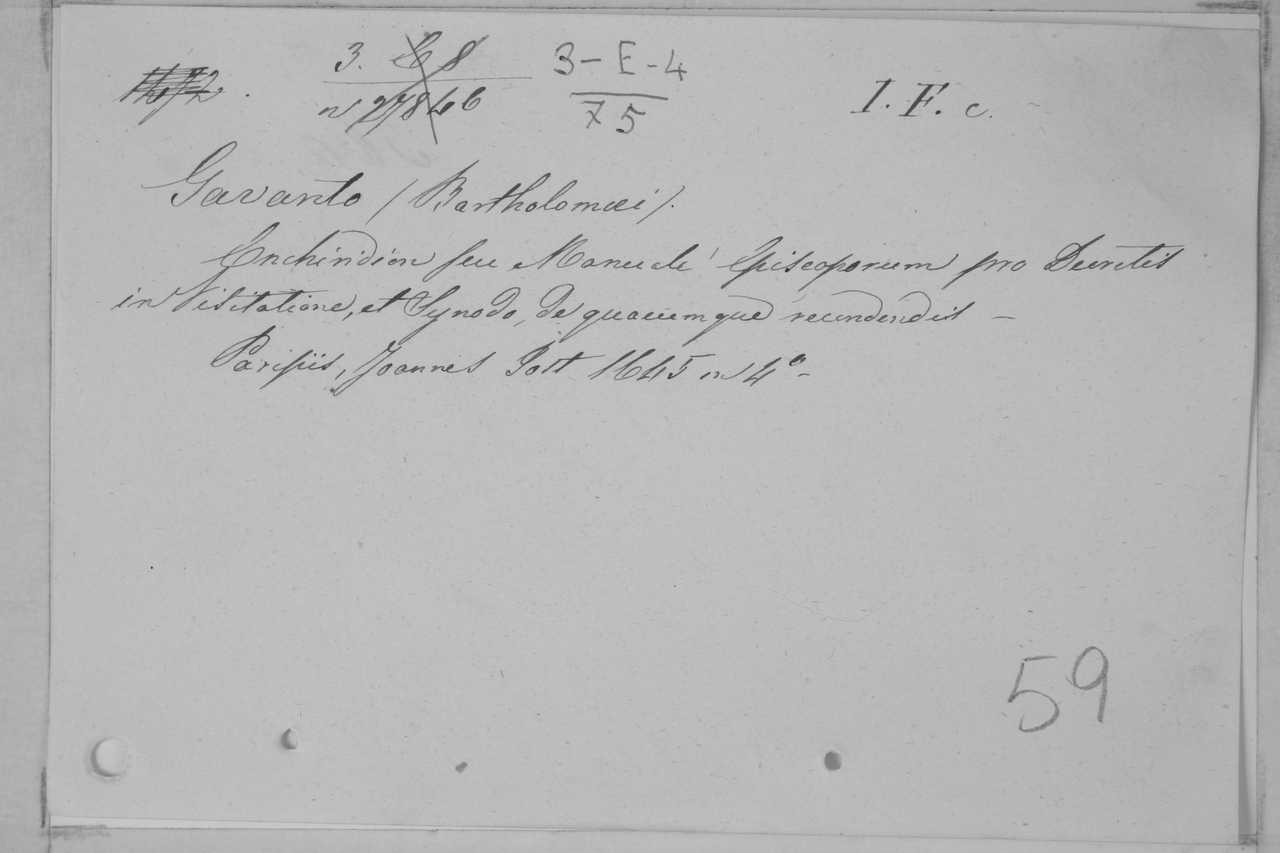 3. C 8 3-E-4
n 27846 75 I. F. c.
Gavanto (Bartholomœi).
Enchiridion seu Manuale Episcoporum pro Decretis
in Visitatione, et Synodo, de quacumque recondendis -
Parisiis, Joannes Jost 1645 in 4º -
59